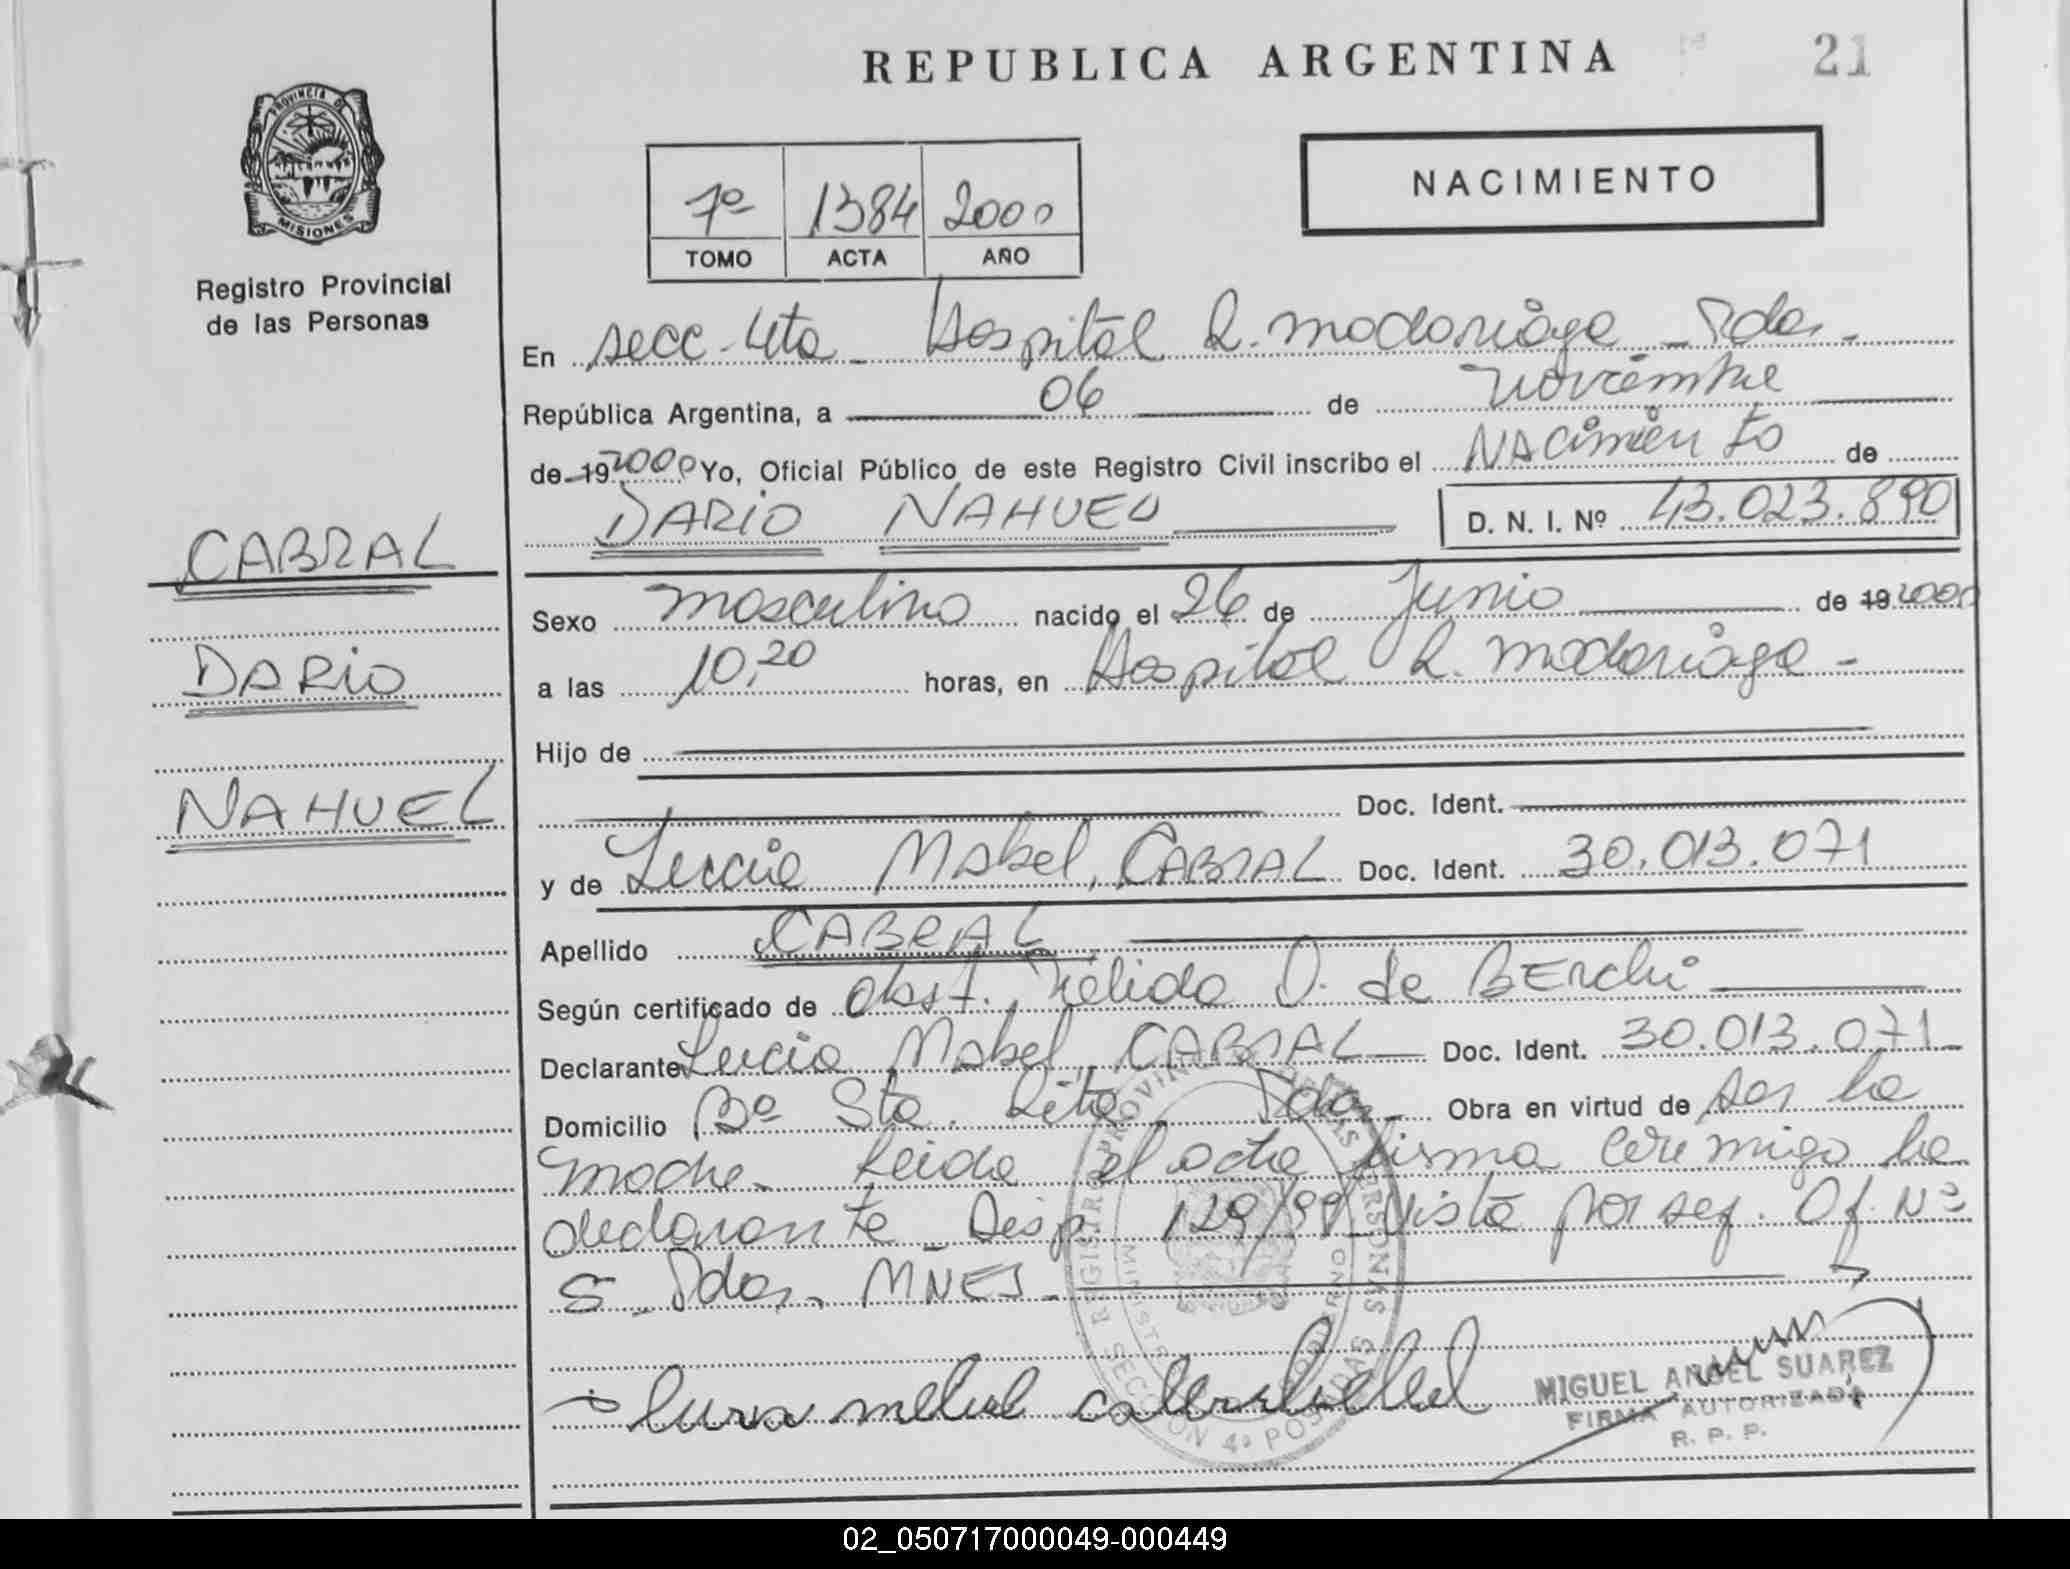 REPUBLICA ARGENTINA
21
PROVINCIA DE
MISIONES
Registro Provincial
de las Personas
7º 1384 2000
TOMO ACTA AÑO
NACIMIENTO
En secc. 4ta - Hospital R. Madariaga - Pdas.
República Argentina, a 06 de Noviembre
de 19 2000 Yo, Oficial Público de este Registro Civil inscribo el Nacimiento de
DARIO NAHUEL D. N. I. Nº 43.023.890
CABRAL
DARIO
NAHUEL
Sexo masculino nacido el 26 de Junio de 19 2000
a las 10,20 horas, en Hospital R. Madariaga -
Hijo de
Doc. Ident.
y de Lucia Mabel, CABRAL Doc. Ident. 30.013.071
Apellido CABRAL
Según certificado de Obst. Nélida D. de
Declarante Lucia Mabel, CABRAL Doc. Ident. 30.013.071
Domicilio Bº Sta. Rita - Pdas. Obra en virtud de ser la
madre. Leida el acta firma conmigo la
declarante - Disp. 129/99 Vista por seg. Of. Nº
5 - Pdas. MNES.
REGISTRO PROVINCIAL DE LAS PERSONAS
MINISTERIO DE GOBIERNO
SECCION 4ª POSADAS
MIGUEL ANGEL SUAREZ
FIRMA AUTORIZADA
R. P. P.
02_050717000049-000449